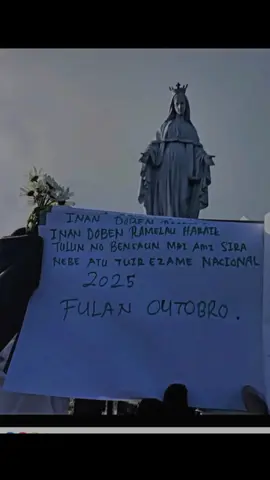 INAN DOBEN
INAN DOBEN RAMELAU HARAIK
TULUN NO BENSAUN MAI AMI SIRA
NEBE ATU TUIR EZAME NACIONAL
2025
FULAN OUTOBRO.